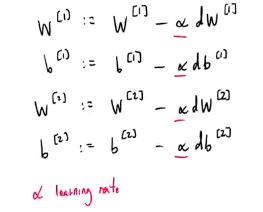 W^[1] := W^[1] - α dW^[1]
b^[1] := b^[1] - α db^[1]
W^[2] := W^[2] - α dW^[2]
b^[2] := b^[2] - α db^[2]
α learning rate